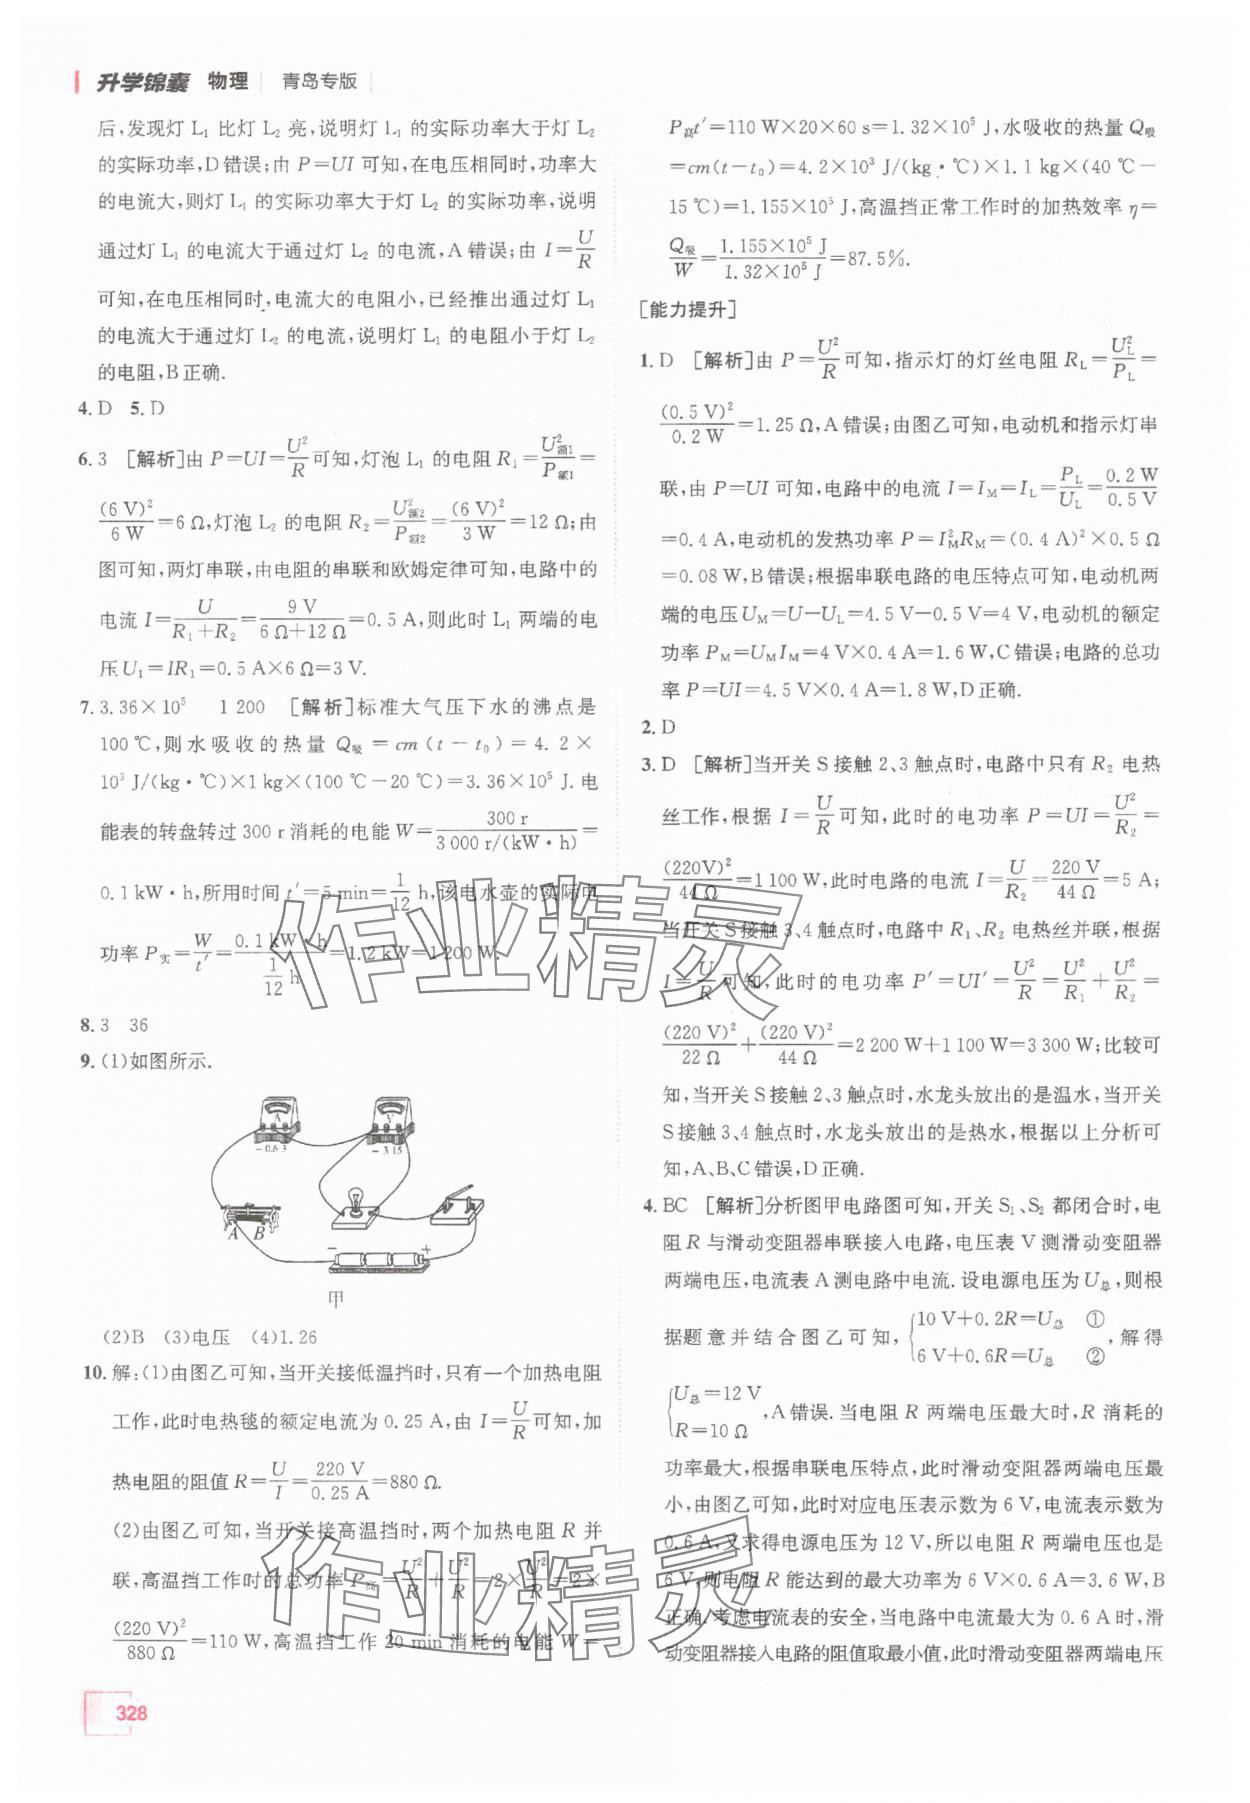 升学锦囊 物理 青岛专版
后,发现灯 L₁ 比灯 L₂ 亮,说明灯 L₁ 的实际功率大于灯 L₂
的实际功率,D 错误;由 P=UI 可知,在电压相同时,功率大
的电流大,则灯 L₁ 的实际功率大于灯 L₂ 的实际功率,说明
通过灯 L₁ 的电流大于通过灯 L₂ 的电流,A 错误;由 I=U/R
可知,在电压相同时,电流大的电阻小,已经推出通过灯 L₁
的电流大于通过灯 L₂ 的电流,说明灯 L₁ 的电阻小于灯 L₂
的电阻,B 正确.
4. D 5. D
6. 3 [解析]由 P=UI=U²/R 可知,灯泡 L₁ 的电阻 R₁=U额1²/P额1=
(6 V)²/6 W=6 Ω,灯泡 L₂ 的电阻 R₂=U额2²/P额2=(6 V)²/3 W=12 Ω;由
图可知,两灯串联,由电阻的串联和欧姆定律可知,电路中的
电流 I=U/(R₁+R₂)=9 V/(6 Ω+12 Ω)=0.5 A,则此时 L₁ 两端的电
压 U₁=IR₁=0.5 A×6 Ω=3 V.
7. 3.36×10⁵ 1 200 [解析]标准大气压下水的沸点是
100 ℃,则水吸收的热量 Q吸=cm(t-t₀)=4.2×
10³ J/(kg·℃)×1 kg×(100 ℃-20 ℃)=3.36×10⁵ J.电
能表的转盘转过 300 r 消耗的电能 W=300 r/3 000 r/(kW·h)=
0.1 kW·h,所用时间 t′=5 min=1/12 h,该电水壶的实际电
功率 P实=W/t′=0.1 kW·h/(1/12 h)=1.2 kW=1 200 W.
8. 3 36
9. (1)如图所示.
A
-0.6 3
V
-3 15
A B
- +
甲
(2)B (3)电压 (4)1.26
10. 解:(1)由图乙可知,当开关接低温挡时,只有一个加热电阻
工作,此时电热毯的额定电流为 0.25 A,由 I=U/R 可知,加
热电阻的阻值 R=U/I=220 V/0.25 A=880 Ω.
(2)由图乙可知,当开关接高温挡时,两个加热电阻 R 并
联,高温挡工作时的总功率 P高=U²/R+U²/R=2×U²/R=2×
(220 V)²/880 Ω=110 W,高温挡工作 20 min 消耗的电能 W=
P高t′=110 W×20×60 s=1.32×10⁵ J,水吸收的热量 Q吸
=cm(t-t₀)=4.2×10³ J/(kg·℃)×1.1 kg×(40 ℃-
15 ℃)=1.155×10⁵ J,高温挡正常工作时的加热效率 η=
Q吸/W=1.155×10⁵ J/1.32×10⁵ J=87.5%.
[能力提升]
1. D [解析]由 P=U²/R 可知,指示灯的灯丝电阻 R_L=U_L²/P_L=
(0.5 V)²/0.2 W=1.25 Ω,A 错误;由图乙可知,电动机和指示灯串
联,由 P=UI 可知,电路中的电流 I=I_M=I_L=P_L/U_L=0.2 W/0.5 V
=0.4 A,电动机的发热功率 P=I_M²R_M=(0.4 A)²×0.5 Ω
=0.08 W,B 错误;根据串联电路的电压特点可知,电动机两
端的电压 U_M=U-U_L=4.5 V-0.5 V=4 V,电动机的额定
功率 P_M=U_M I_M=4 V×0.4 A=1.6 W,C 错误;电路的总功
率 P=UI=4.5 V×0.4 A=1.8 W,D 正确.
2. D
3. D [解析]当开关 S 接触 2、3 触点时,电路中只有 R₂ 电热
丝工作,根据 I=U/R 可知,此时的电功率 P=UI=U²/R₂=
(220V)²/44 Ω=1 100 W,此时电路的电流 I=U/R₂=220 V/44 Ω=5 A;
当开关 S 接触 3、4 触点时,电路中 R₁、R₂ 电热丝并联,根据
I=U/R 可知,此时的电功率 P′=UI′=U²/R=U²/R₁+U²/R₂=
(220 V)²/22 Ω+(220 V)²/44 Ω=2 200 W+1 100 W=3 300 W;比较可
知,当开关 S 接触 2、3 触点时,水龙头放出的是温水,当开关
S 接触 3、4 触点时,水龙头放出的是热水,根据以上分析可
知,A、B、C 错误,D 正确.
4. BC [解析]分析图甲电路图可知,开关 S₁、S₂ 都闭合时,电
阻 R 与滑动变阻器串联接入电路,电压表 V 测滑动变阻器
两端电压,电流表 A 测电路中电流.设电源电压为 U总,则根
据题意并结合图乙可知,{10 V+0.2R=U总 ① 6 V+0.6R=U总 ②,解得
{U总=12 V R=10 Ω,A 错误.当电阻 R 两端电压最大时,R 消耗的
功率最大,根据串联电压特点,此时滑动变阻器两端电压最
小,由图乙可知,此时对应电压表示数为 6 V,电流表示数为
0.6 A,又求得电源电压为 12 V,所以电阻 R 两端电压也是
6 V,则电阻 R 能达到的最大功率为 6 V×0.6 A=3.6 W,B
正确.考虑电流表的安全,当电路中电流最大为 0.6 A 时,滑
动变阻器接入电路的阻值取最小值,此时滑动变阻器两端电压
作业精灵
作业精灵
328